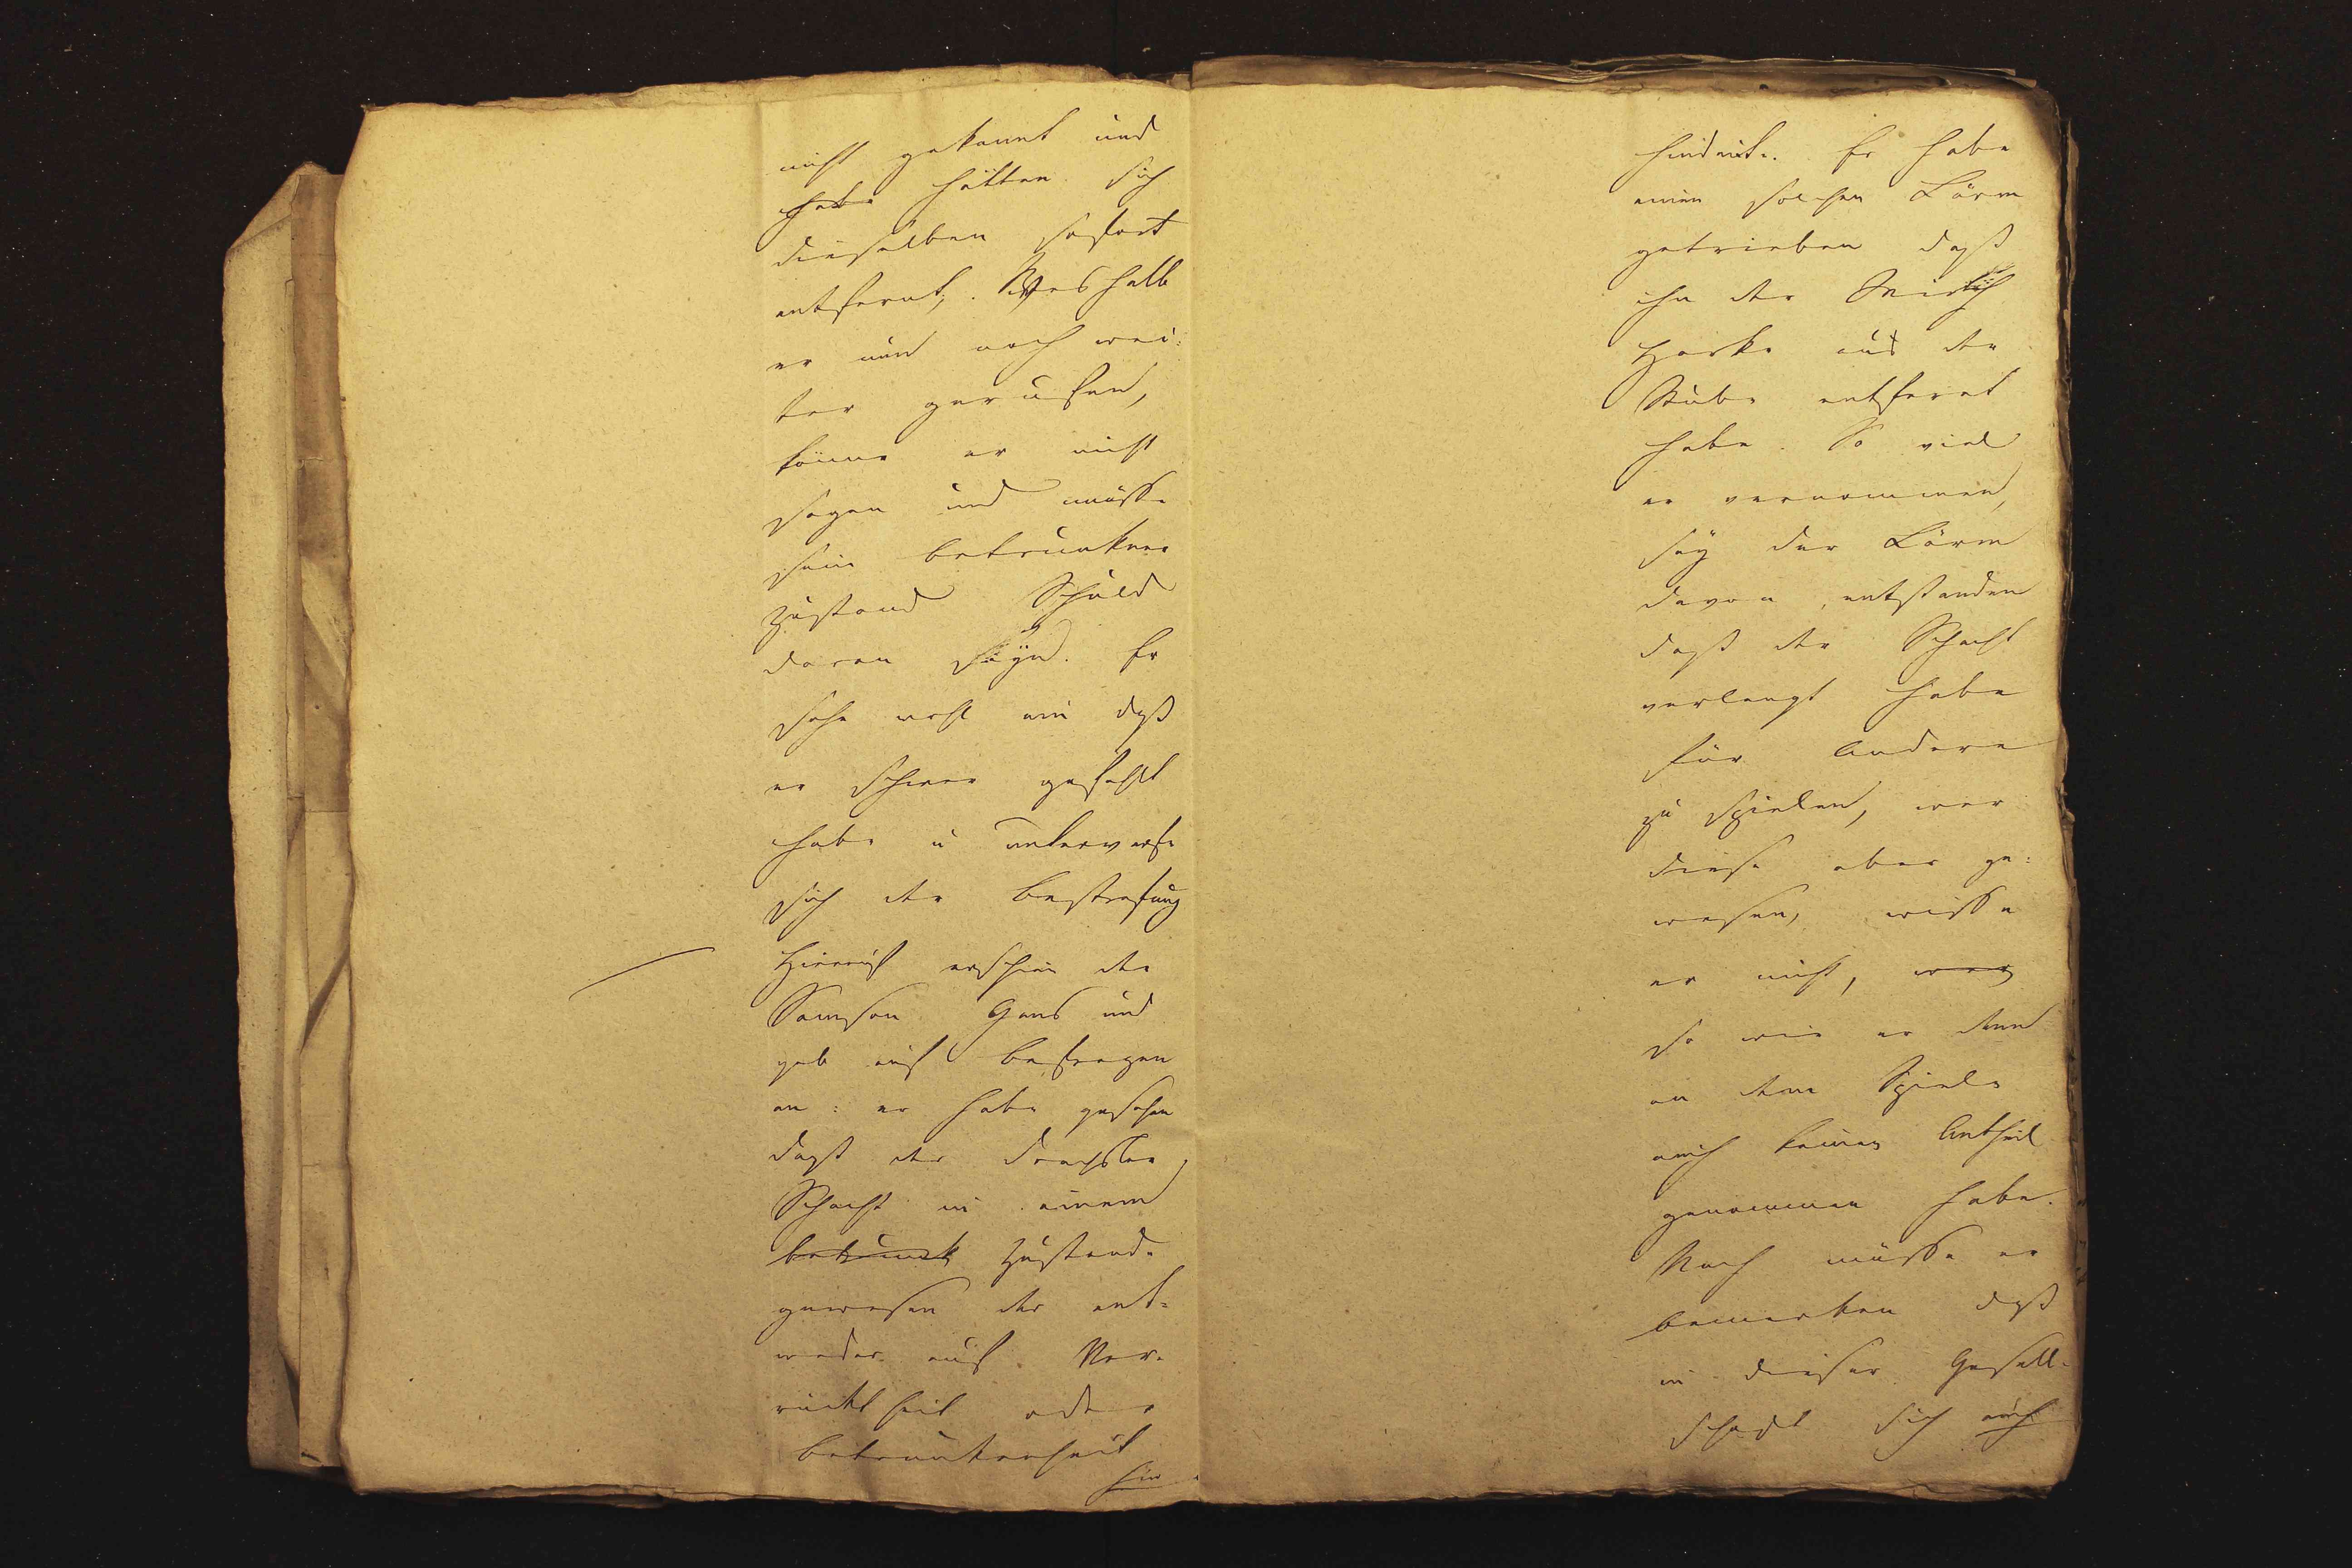 nicht gekannt und
habe hätten sich
dieselben sofort
entfernt; Weshalb
er nun noch wei:
ter gerufen,
könne er nicht
sagen und müsse
sein betrunkner
Zustand Schuld
daran seyn. Er
sehe wohl ein daß
er schwer gefehlt
habe u unterwerfe
sich der Bestrafung
Hierauf erschien der
Samson Gans und
gab auf Befragen
an: er habe gesehen
daß der Drechsler
Schacht in einem
betrunk Zustande
gewesen der ent-
weder auf Ver-
rücktheit oder
Betrunkenheit
hin-
hindeute. Er habe
einen solchen Lärm
getrieben daß
ihn der Wirth
Harke aus der
Stube entfernt
habe. So viel
er vernommen,
sey der Lärm
davon entstanden
daß der Schacht
verlangt habe
für Andere
zu spielen, wer
diese aber ge:
wesen, wisse
er nicht,
so wie er denn
an dem Spiele
auch keinen Antheil
genommen habe.
Noch müsse er
bemerken daß
in dieser Gesell-
schaft sich auch